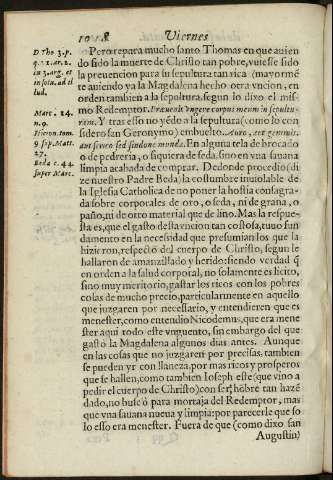 1018 Viernes
D Tho 3.p.
q. 51. ar. 2.
in 3. arg. et
in solu. ad il
lud.
Marc. 24.
n. 9.
Hieron. tom.
9 sup. Matt.
27.
Beda c. 44.
super Marc.
Pero repara mucho santo Thomas en que auien
do sido la muerte de Christo tan pobre, vuiesse sido
la preuencion para su sepultura tan rica (mayormē
te auiendo ya la Magdalena hecho otra vncion, en
orden tambien a la sepultura, segun lo dixo el mis-
mo Redemptor. Præuenit vngere corpus meum in sepultu-
ram. Y tras esso no yēdo a la sepultura (como lo con
sidero san Geronymo) embuelto. Auro, aut gemmis,
aut serico sed sindone munda. En alguna tela de brocado
o de pedreria, o siquiera de seda, sino en vna sauana
limpia acabada de comprar. Dedonde procedio (di
ze nuestro Padre Beda) la costumbre inuiolable de
la Iglesia Catholica de no poner la hostia consagra-
da sobre corporales de oro, o seda, ni de grana, o
paño, ni de otro material que de lino. Mas la respue-
sta es, que el gasto desta vncion tan costosa, tuuo fun
damento en la necesidad que presumian los que la
hizieron, respecto del cuerpo de Christo, segun le
hallaren de amanzillado y herido: siendo verdad q̄
en orden a la salud corporal, no solamente es licito,
sino muy meritorio, gastar los ricos con los pobres
cosas de mucho precio, particularmente en aquello
que juzgaren por necessario, y entendieren que es
menester, como entendio Nicodemus, que era mene
ster aqui todo este vnguento, sin embargo del que
gastò la Magdalena algunos dias antes. Aunque
en las cosas que no juzgaren por precisas, tambien
se pueden yr con llaneza, por mas ricos y prosperos
que se hallen, como tambien Ioseph este (que vino a
pedir el cuerpo de Christo) con ser hōbre tan hazē
dado, no buscò para mortaja del Redemptor, mas
que vna sauana nueua y limpia: por parecerle que so
lo esso era menester. Fuera de que (como dixo san
Augustin)